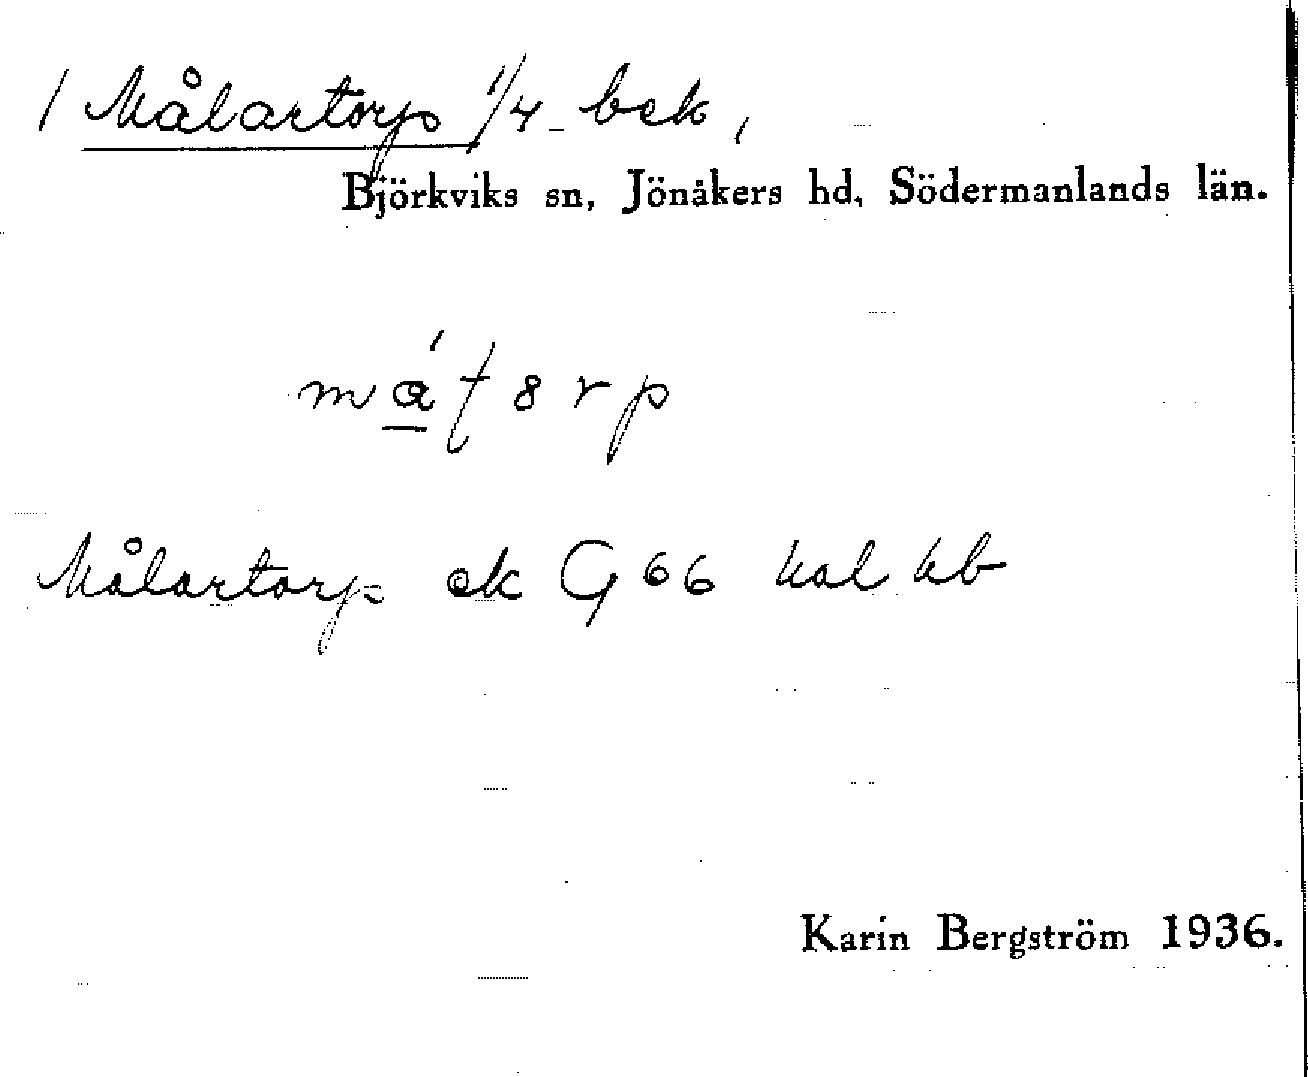 / Målartorp 1/4 bek,
Björkviks sn, Jönåkers hd, Södermanlands län.
Målartorp ek G 66 kal kb
Karin Bergström 1936.